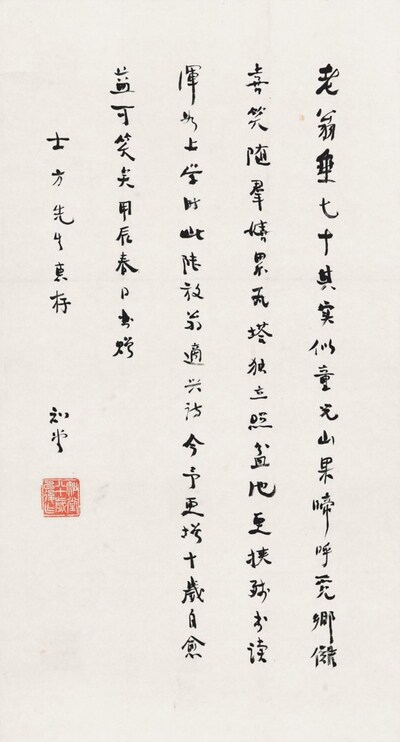 老翁垂七十其实似童兒山果啼呼覓鄉儺
喜笑随羣嬉累瓦塔独立照盆池更挾殘书读
渾如上学时此陸放翁適兴诗今予更增十歲自愈
益可笑矣甲辰春日书贈
士方先生惠存
知堂